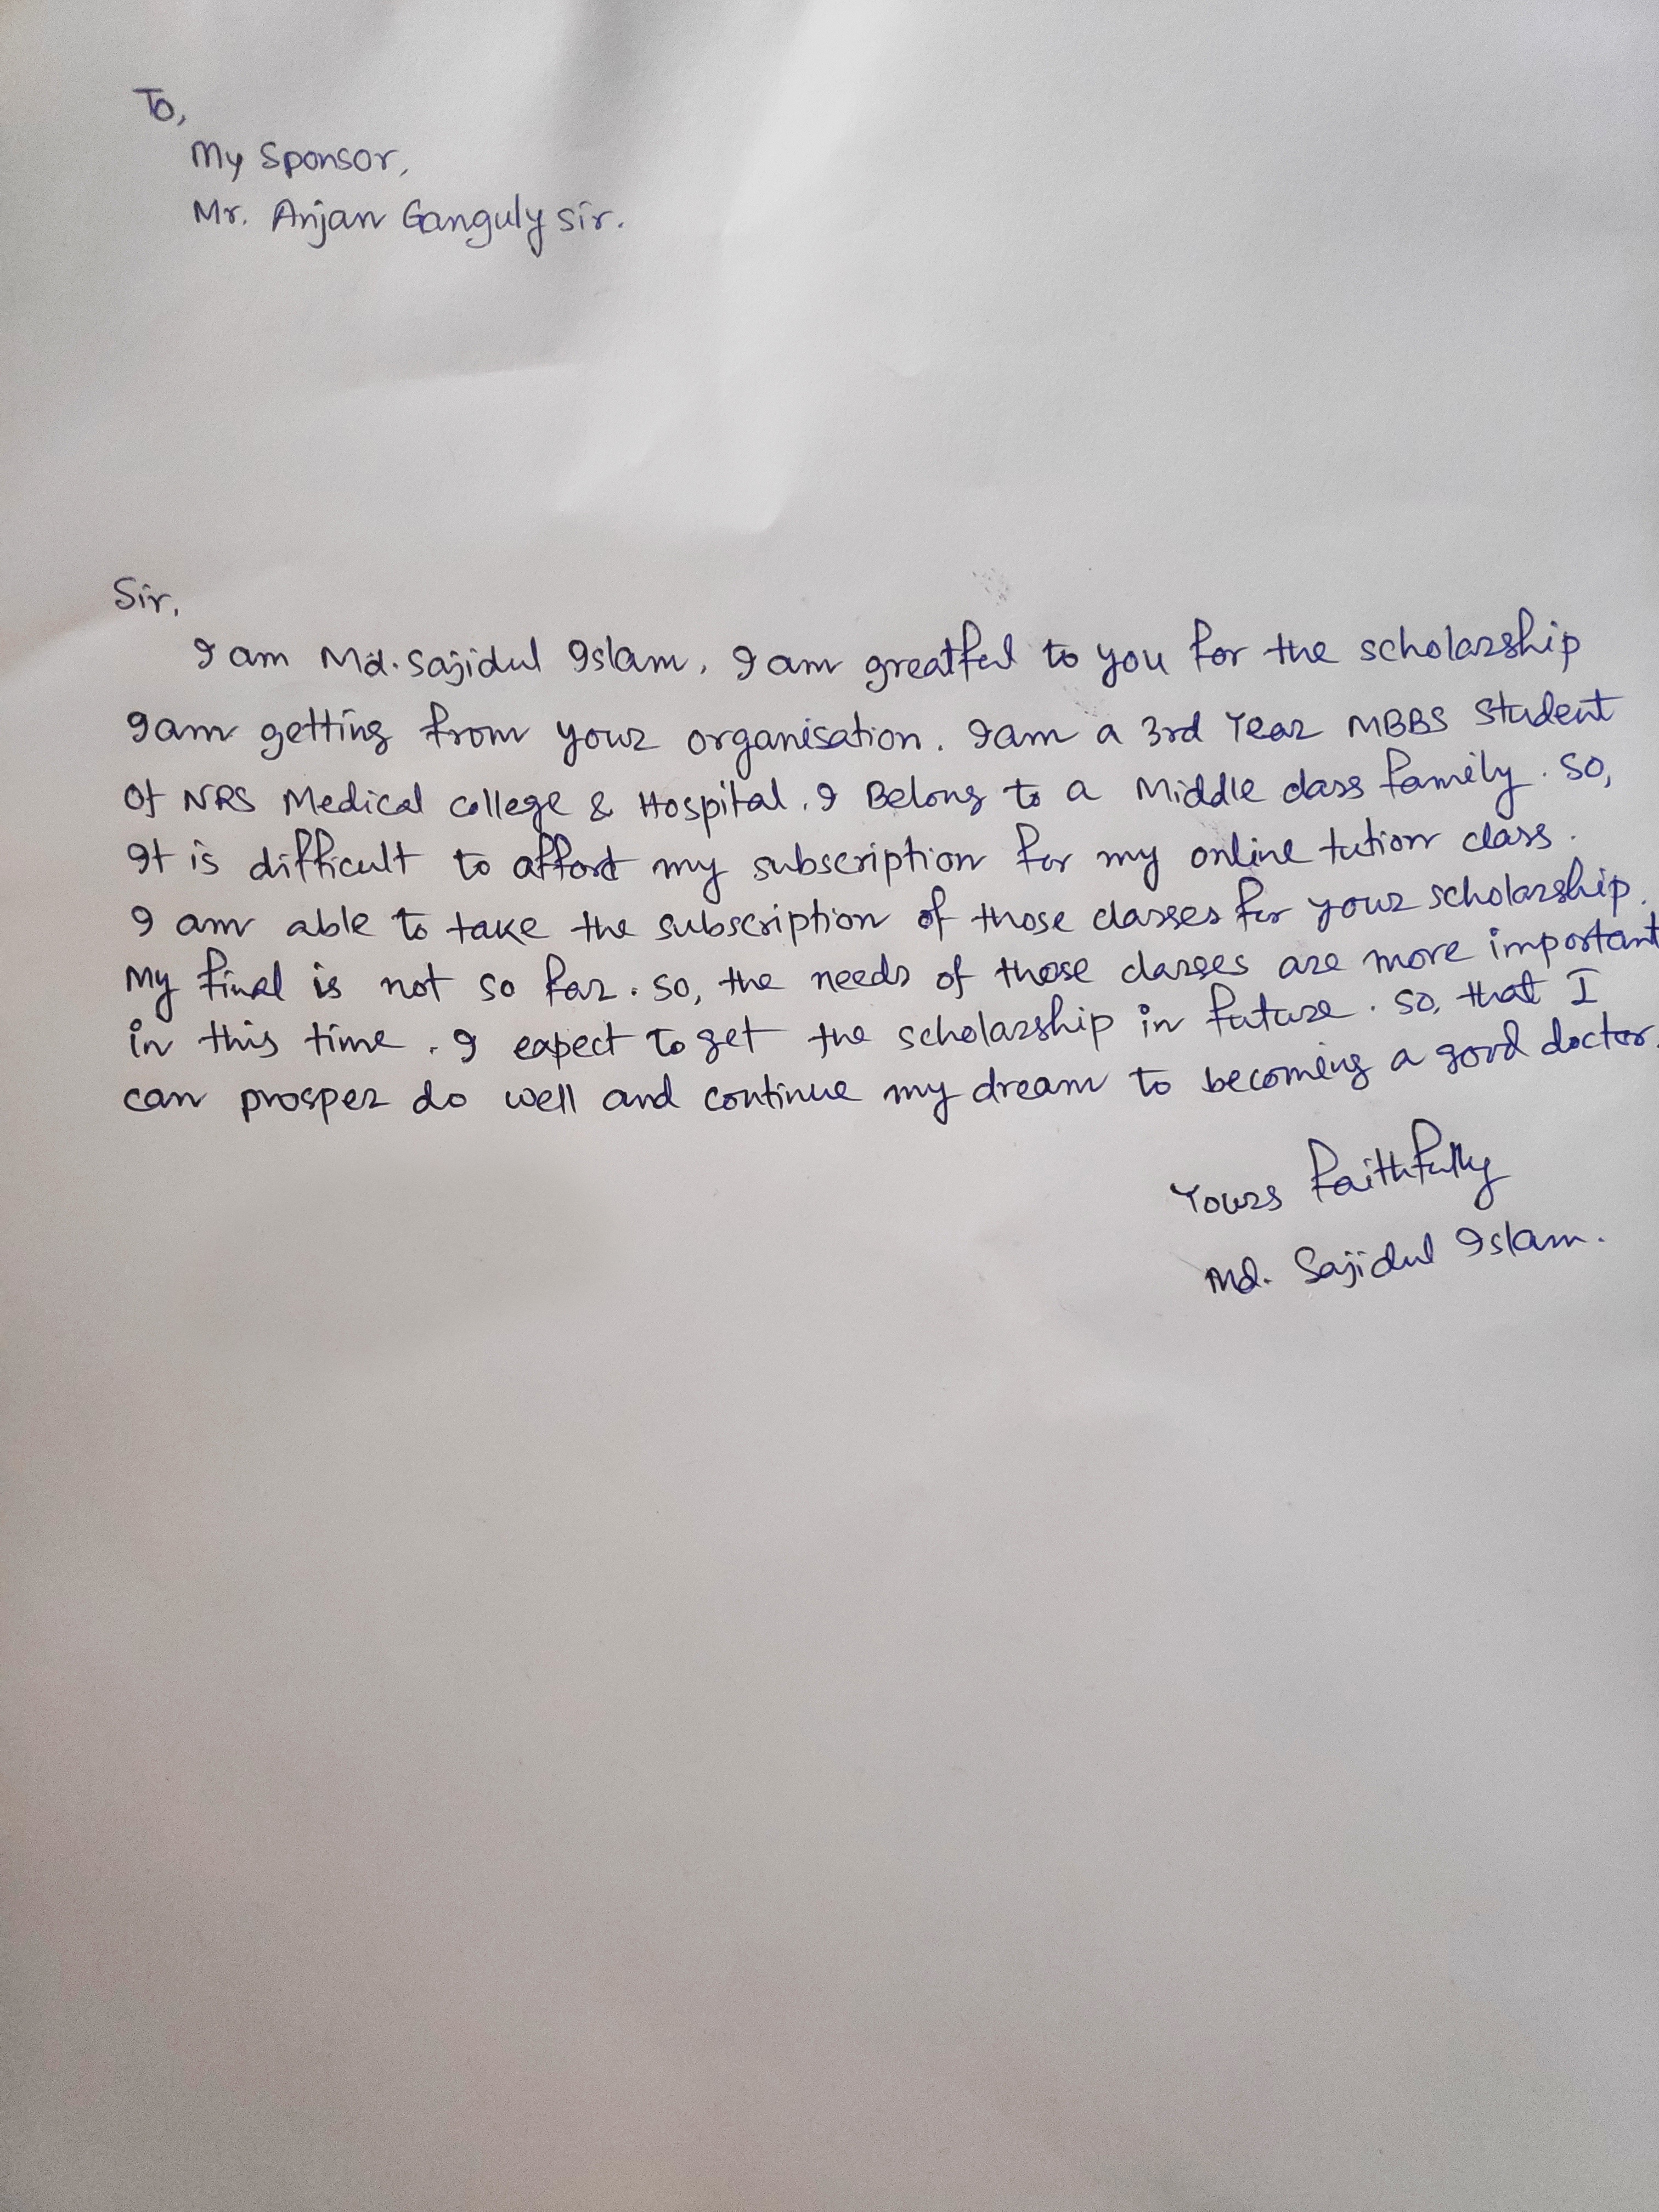 To,
My Sponsor,
Mr. Anjan Ganguly sir.
Sir,
I am Md. Sajidul Islam. I am greatful to you for the scholarship
I am getting from your organisation. I am a 3rd Year MBBS Student
Of NRS Medical college & Hospital. I Belong to a Middle class family. So,
It is difficult to afford my subscription for my online tution class.
I am able to take the subscription of those classes for your scholarship.
My final is not so far. So, the needs of those classes are more important
in this time. I expect to get the scholarship in future. So, that I
can prosper do well and continue my dream to becoming a good doctor.
Yours faithfully
Md. Sajidul Islam.